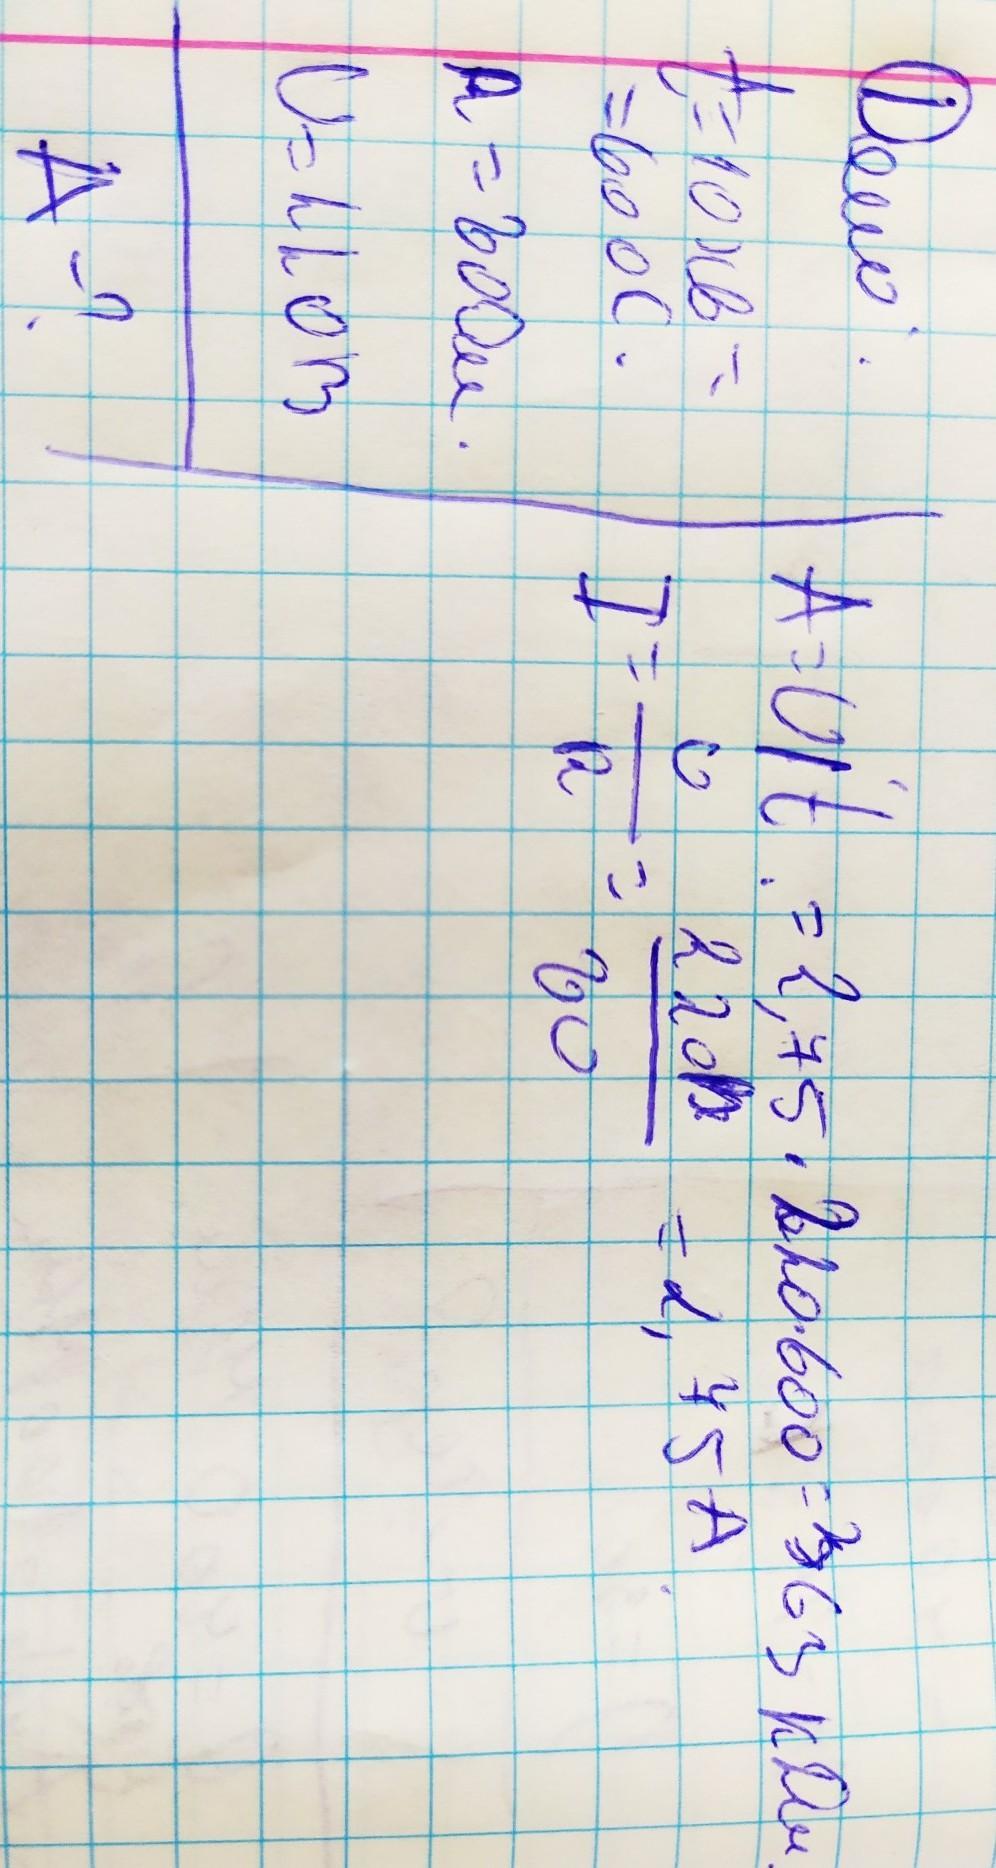 ① Дано:
t = 10 хв =
= 600 с.
R = 80 Ом.
U = 220 В
A - ?
A = UIt. = 2,75 · 220 · 600 = 363 кДж.
I = U / R = 220 В / 80 = 2,75 A